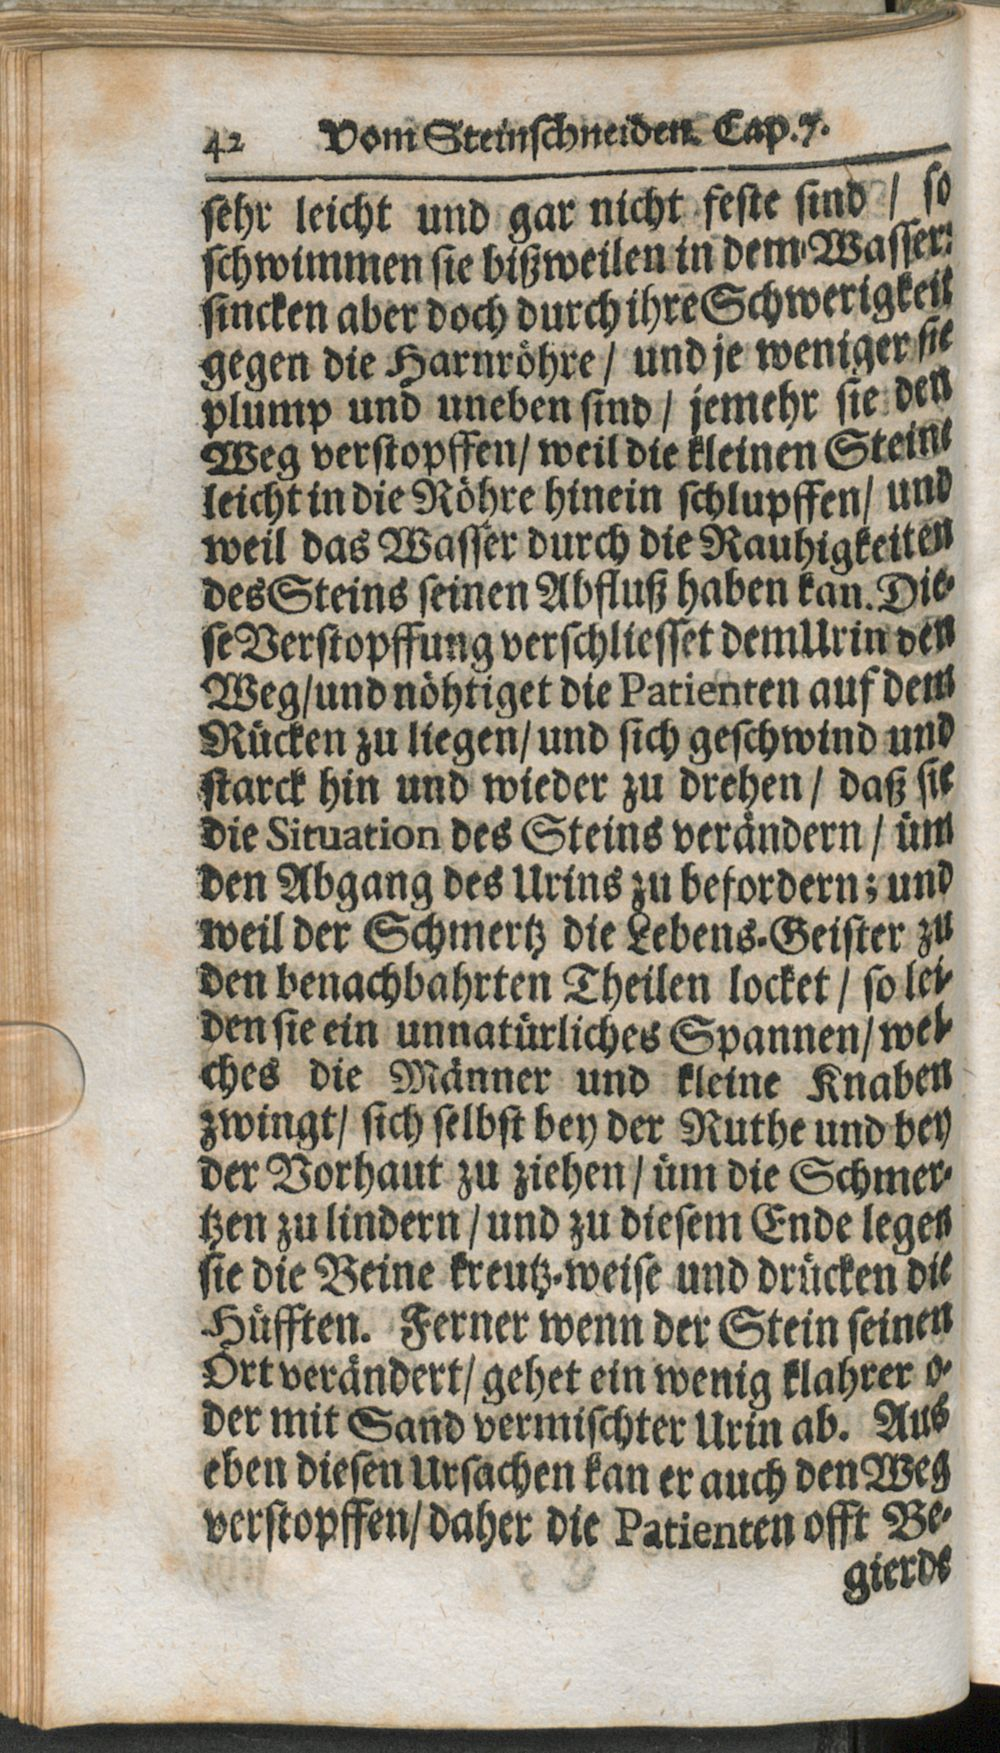 42 Vom Steinschneiden. Cap. 7.
sehr leicht und gar nicht feste sind / so
schwimmen sie bißweilen in dem Wasser:
sincken aber doch durch ihre Schwerigkeit
gegen die Harnröhre / und je weniger sie
plump und uneben sind / jemehr sie den
Weg verstopffen / weil die kleinen Steine
leicht in die Röhre hinein schlupffen / und
weil das Wasser durch die Rauhigkeiten
des Steins seinen Abfluß haben kan. Die-
se Verstopffung verschliesset dem Urin den
Weg / und nöhtiget die Patienten auf dem
Rücken zu liegen / und sich geschwind und
starck hin und wieder zu drehen / daß sie
die Situation des Steins verändern / üm
den Abgang des Urins zu befordern; und
weil der Schmertz die Lebens-Geister zu
den benachbahrten Theilen locket / so lei-
den sie ein unnatürliches Spannen / wel-
ches die Männer und kleine Knaben
zwingt / sich selbst bey der Ruthe und bey
der Vorhaut zu ziehen / üm die Schmer-
tzen zu lindern / und zu diesem Ende legen
sie die Beine kreutz-weise und drücken die
Hüfften. Ferner wenn der Stein seinen
Ort verändert / gehet ein wenig klahrer o-
der mit Sand vermischter Urin ab. Aus
eben diesen Ursachen kan er auch den Weg
verstopffen / daher die Patienten offt Be-
gierde